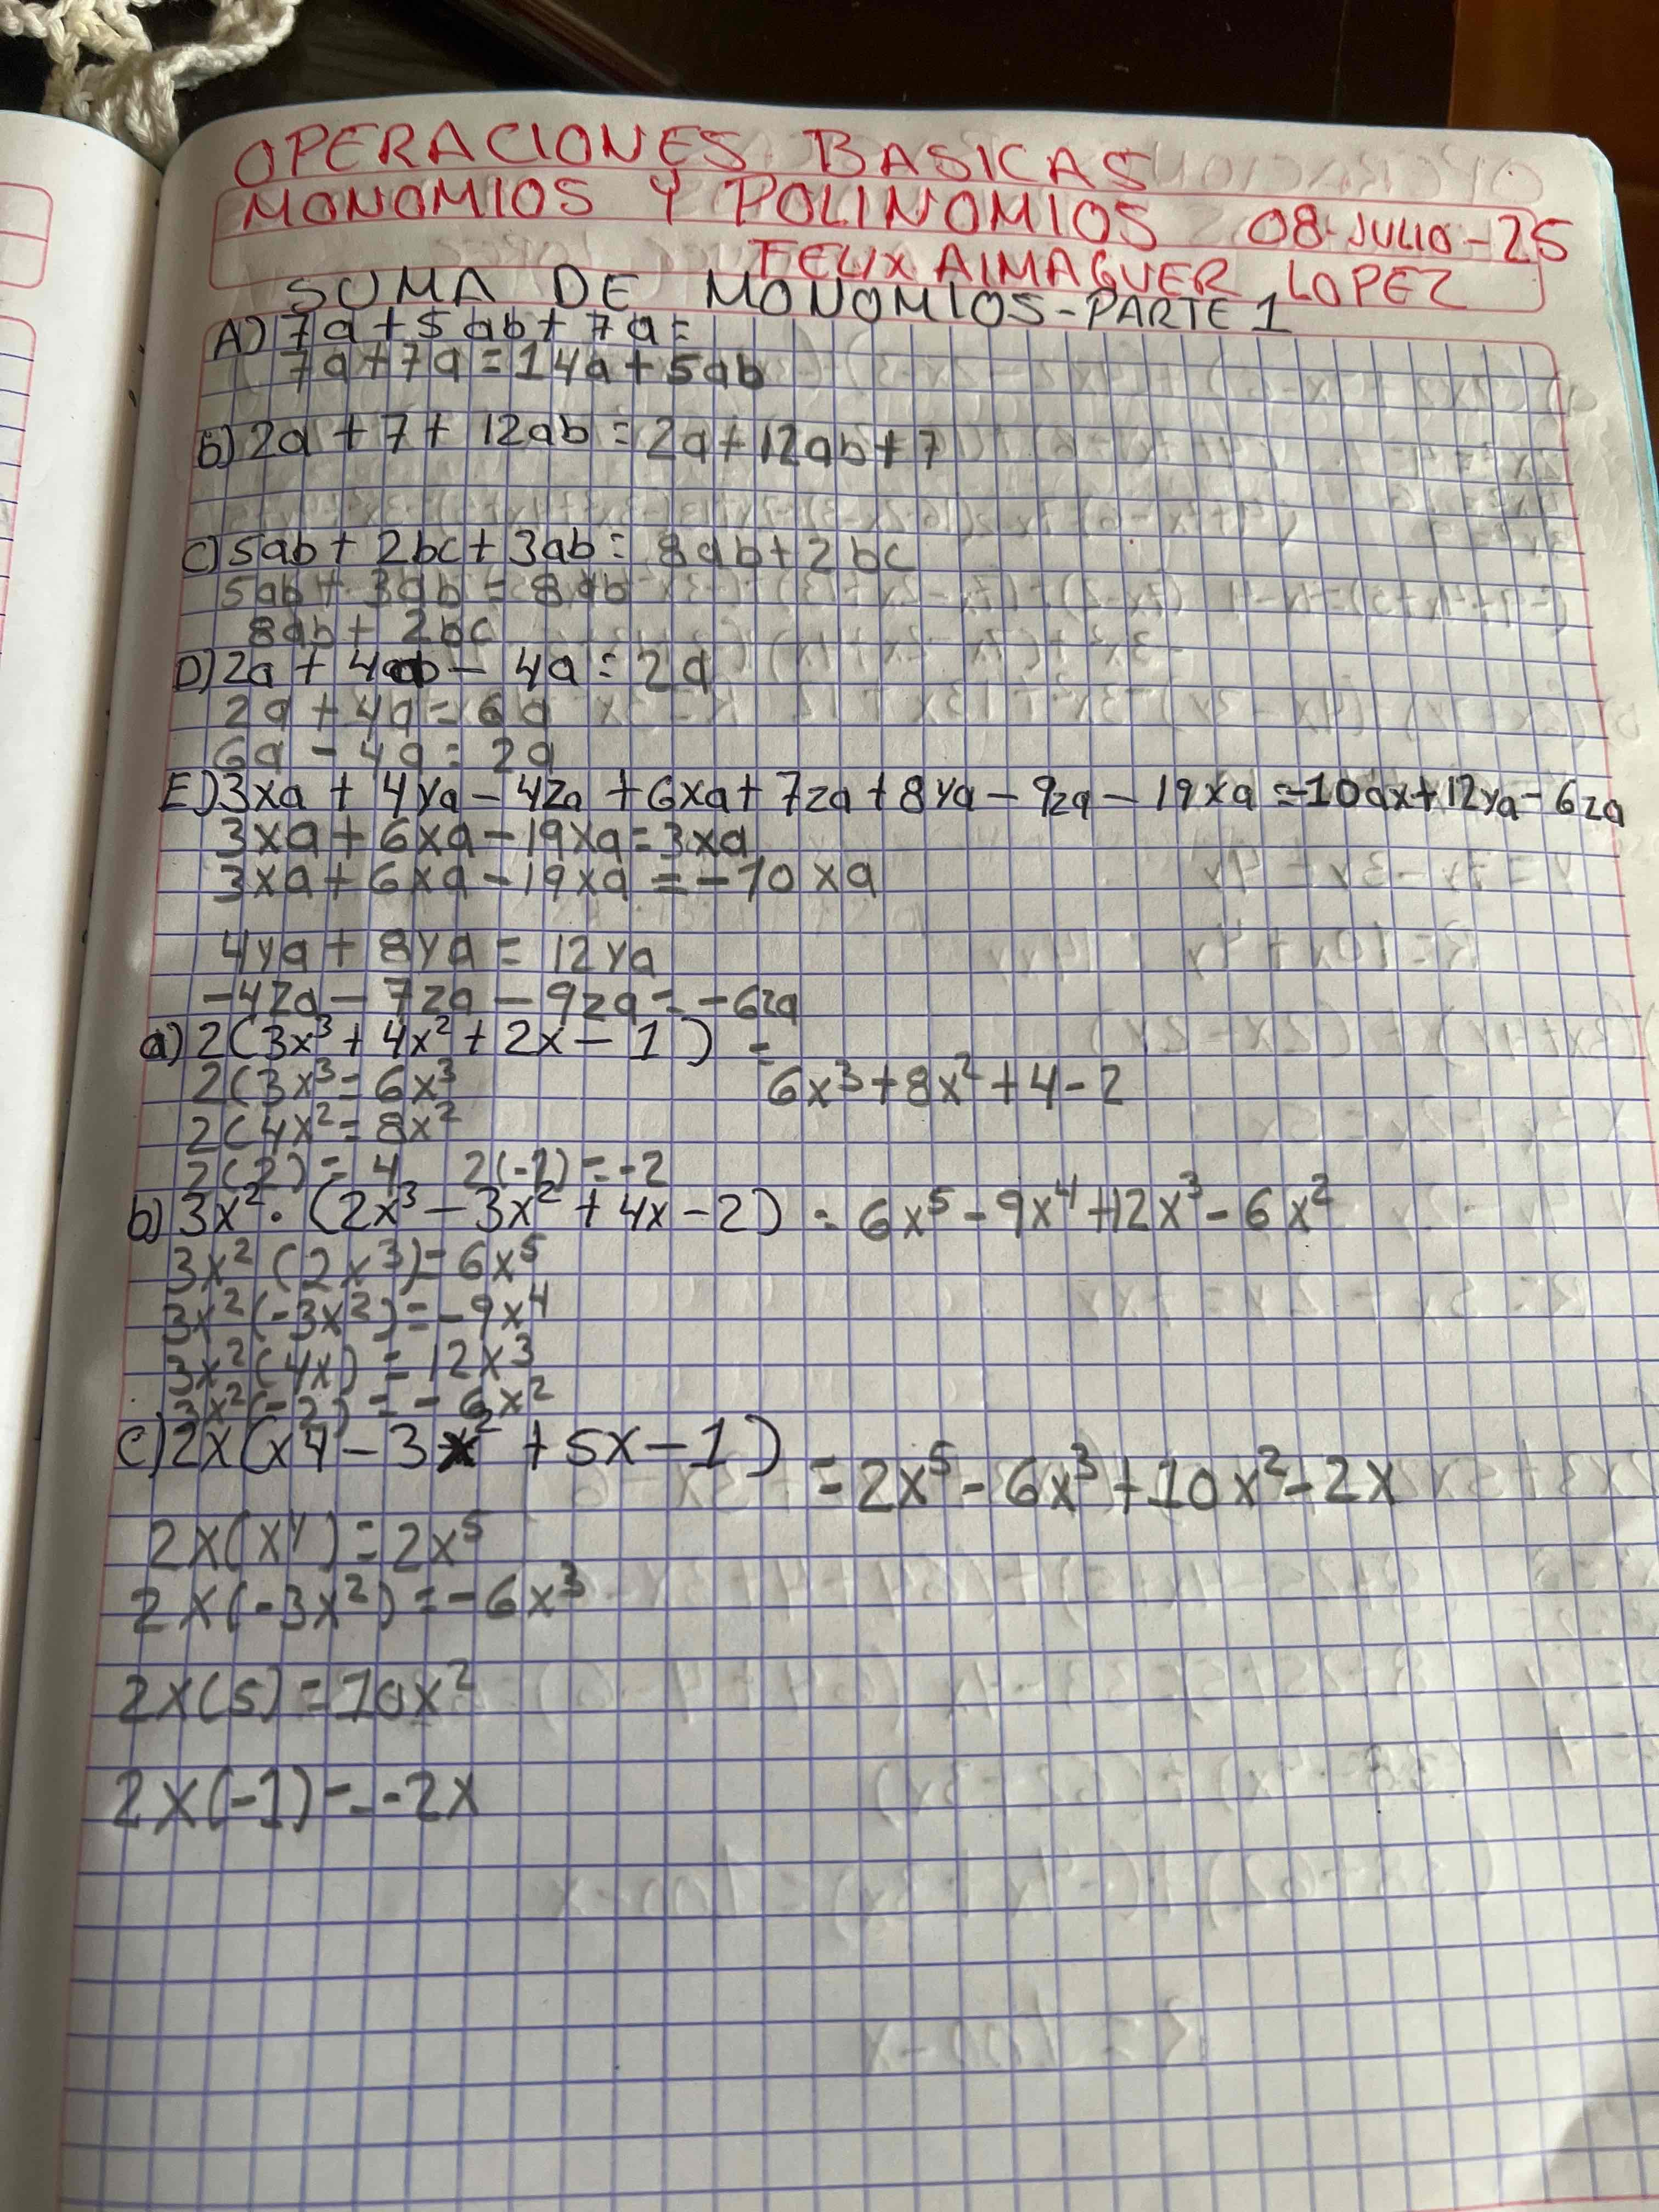 OPERACIONES BASICAS
MONOMIOS Y POLINOMIOS 08-JULIO-25
FELIX AlMAGUER LOPEZ
SUMA DE MONOMIOS-PARTE 1
A) 7a+5ab+7a=
7a+7a=14a+5ab
b) 2a+7+12ab=2a+12ab+7
C) 5ab+2bc+3ab=8ab+2bc
5ab+3ab=8ab
8ab+2bc
D) 2a+4ab-4a=2a
2a+4a=6a
6a-4a=2a
E) 3xa+4ya-4za+6xa+7za+8ya-9za-19xa=-10ax+12ya-6za
3xa+6xa-19xa=3xa
3xa+6xa-19xa=-10xa
4ya+8ya=12ya
-4za-7za-9za=-6za
a) 2(3x³+4x²+2x-1)=
6x³+8x²+4-2
2(3x³=6x³
2(4x²=8x²
2(2)=4 2(-1)=-2
b) 3x²·(2x³-3x²+4x-2)=6x⁵-9x⁴+12x³-6x²
3x²(2x³)=6x⁵
3x²(-3x²)=-9x⁴
3x²(4x)=12x³
3x²(-2)=-6x²
C) 2x(x4-3x²+5x-1)=2x⁵-6x³+10x²-2x
2x(x⁴)=2x⁵
2x(-3x²)=-6x³
2x(5)=10x²
2x(-1)=-2x